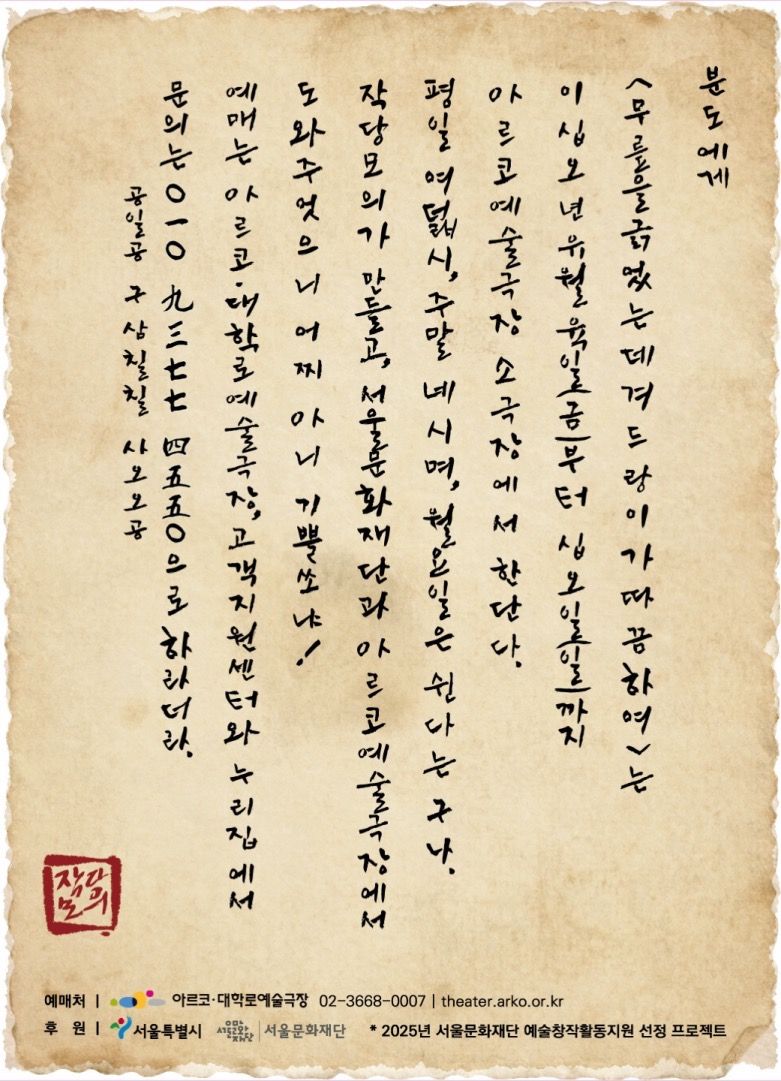 분도에게
<무릎을긁었는데겨드랑이가따끔하여>는
이십오년유월육일(금)부터십오일(일)까지
아르코예술극장 소극장에서한단다.
평일 여덟시, 주말 네시며, 월요일은 쉰다는구나.
작당모의가 만들고, 서울문화재단과 아르코예술극장에서
도와주었으니 어찌 아니 기쁠쏘냐!
예매는 아르코·대학로예술극장, 고객지원센터와 누리집에서
문의는 〇一〇 九三七七 四五五〇으로 하라더라.
공일공 구삼칠칠 사오오공
작당모의
예매처 | 아르코·대학로예술극장 02-3668-0007 | theater.arko.or.kr
후 원 | 서울특별시 서울문화재단 * 2025년 서울문화재단 예술창작활동지원 선정 프로젝트